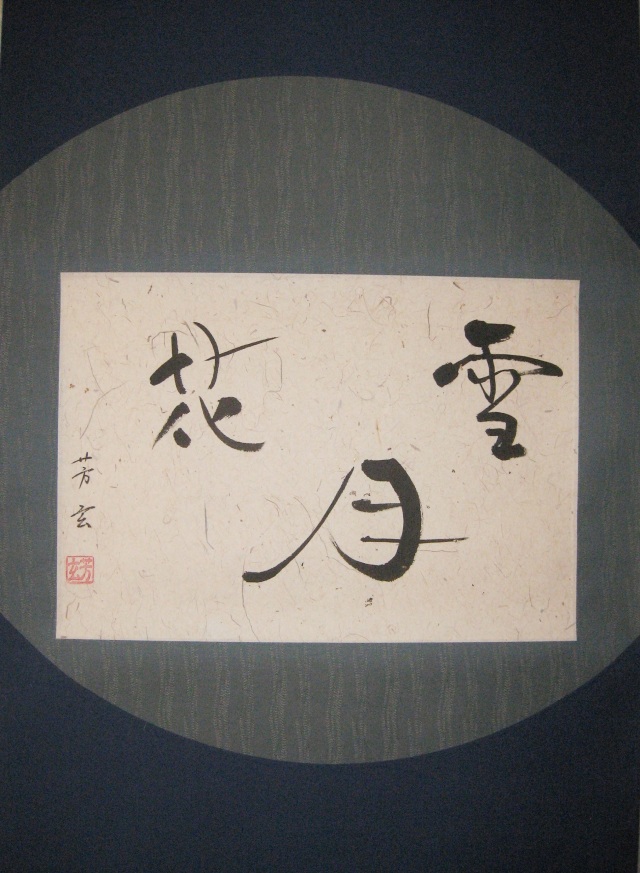 雪
月
花
芳玄
芳玄